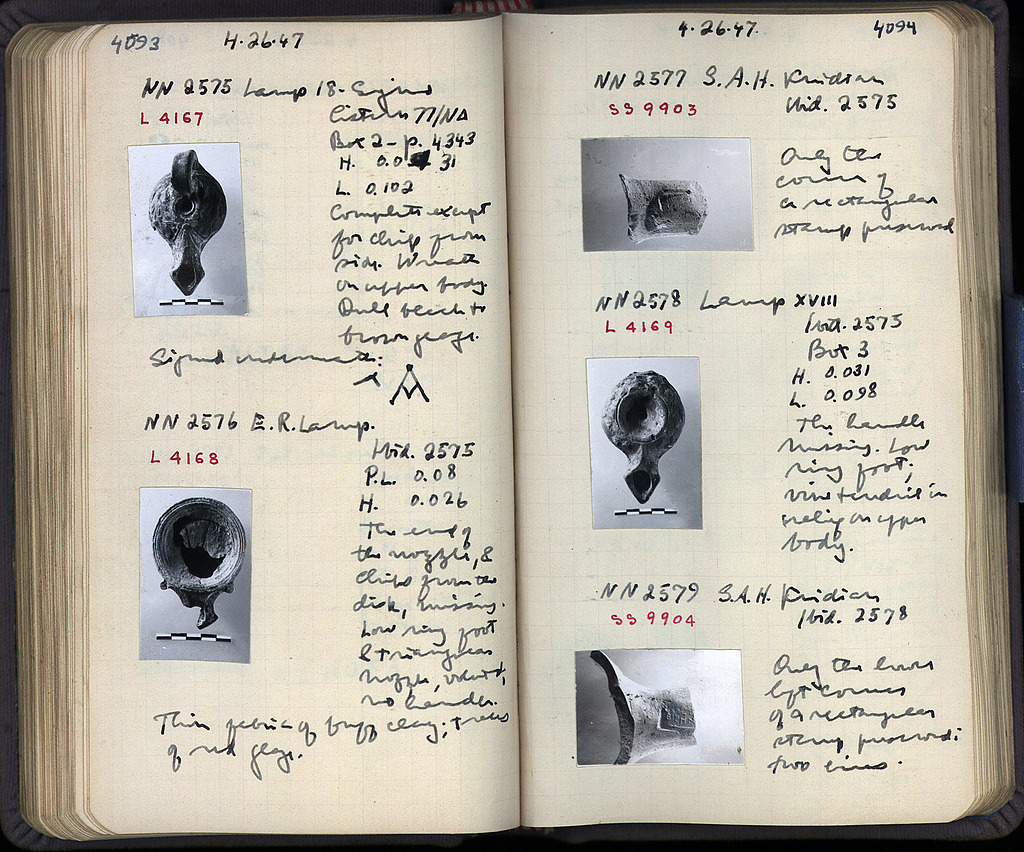 4093 4·26·47
NN 2575 Lamp 18 - Signed
L 4167
Cistern 77/NΔ
Box 2 - p. 4343
H. 0.0 31
L. 0.102
Complete except
for chip from
side. Wreath
on upper body.
Dull black to
brown glaze.
Signed underneath:
NN 2576 E.R. Lamp.
L 4168
Ibid. 2575
P.L. 0.08
H. 0.026
The end of
the nozzle, &
chips from the
disk, missing.
Low ring foot
& triangular
nozzle, voluted,
no handle.
Thin fabric of buff clay; traces
of red glaze.
4·26·47. 4094
NN 2577 S.A.H. Knidian
SS 9903
Ibid. 2575
Only the
corner of
a rectangular
stamp preserved
NN 2578 Lamp XVIII
L 4169
Ibid. 2575
Box 3
H. 0.031
L. 0.098
The handle
missing. Low
ring foot;
vine tendril in
relief on upper
body.
NN 2579 S.A.H. Knidian
SS 9904
Ibid. 2578
Only the lower
left corner
of a rectangular
stamp preserved:
two lines.